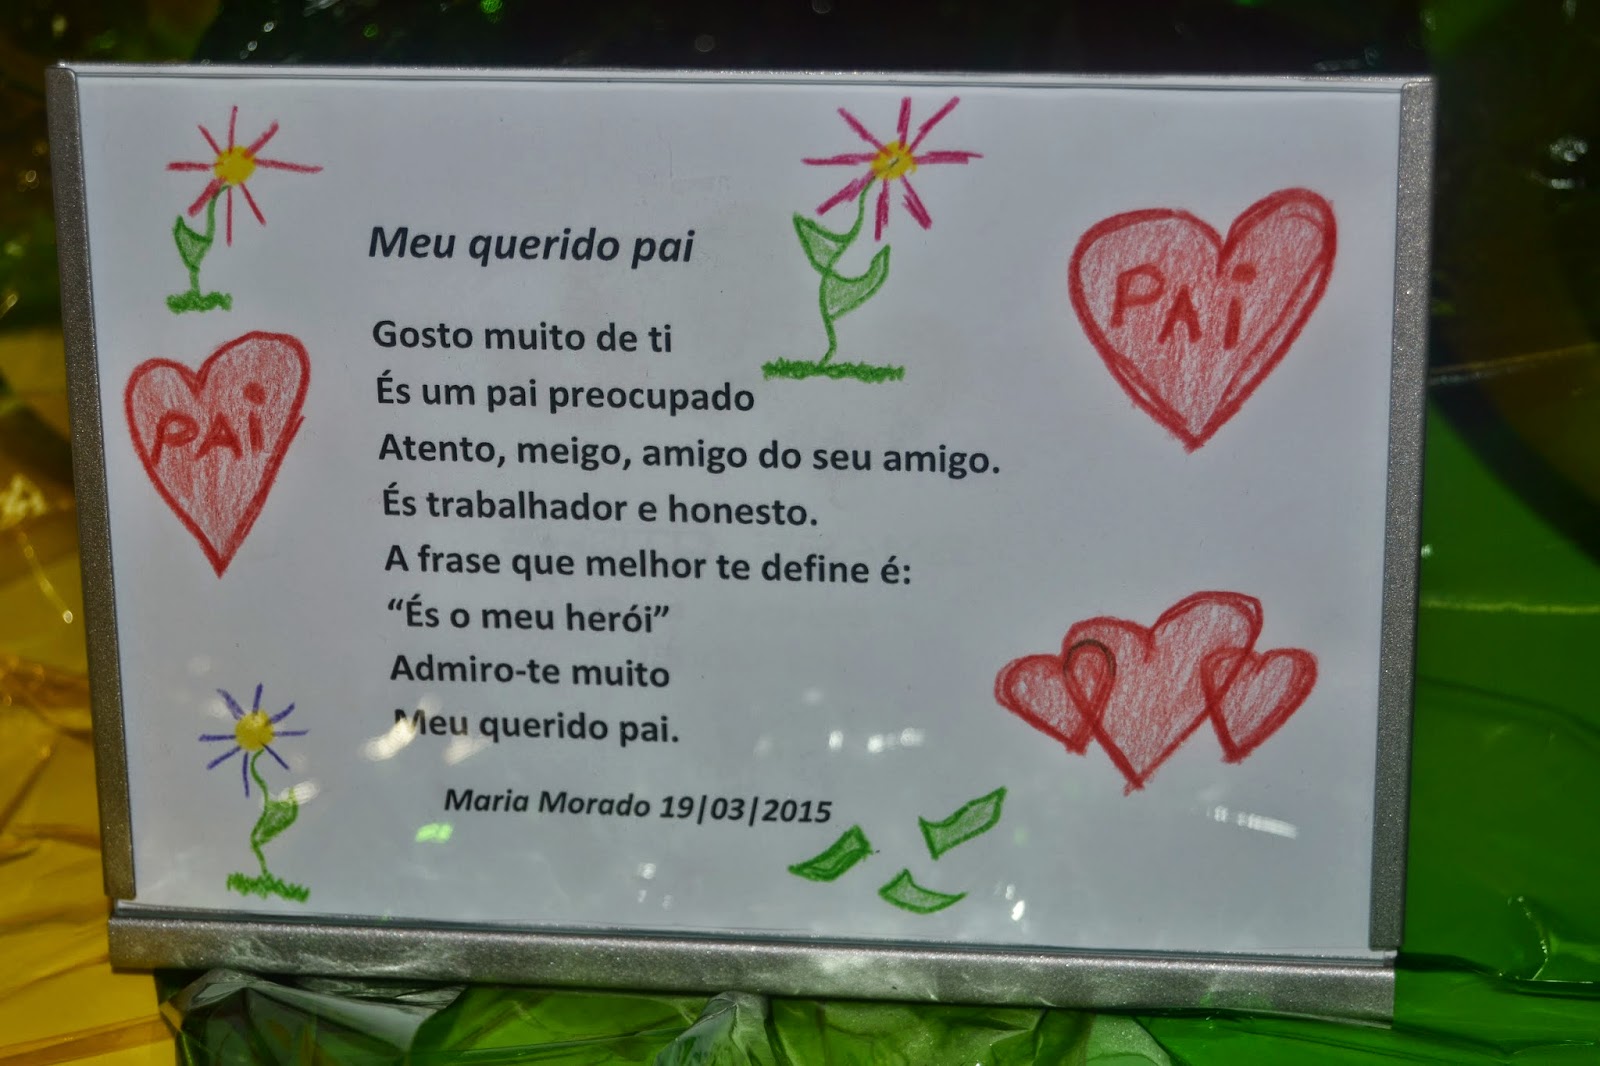 Meu querido pai
Gosto muito de ti
És um pai preocupado
Atento, meigo, amigo do seu amigo.
És trabalhador e honesto.
A frase que melhor te define é:
“És o meu herói”
Admiro-te muito
Meu querido pai.
Maria Morado 19|03|2015
PAi
PAi